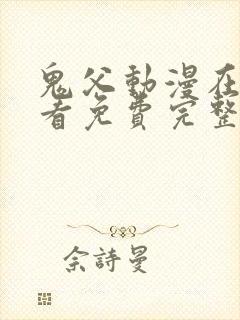 鬼父動漫在
看免費完整
佘詩曼